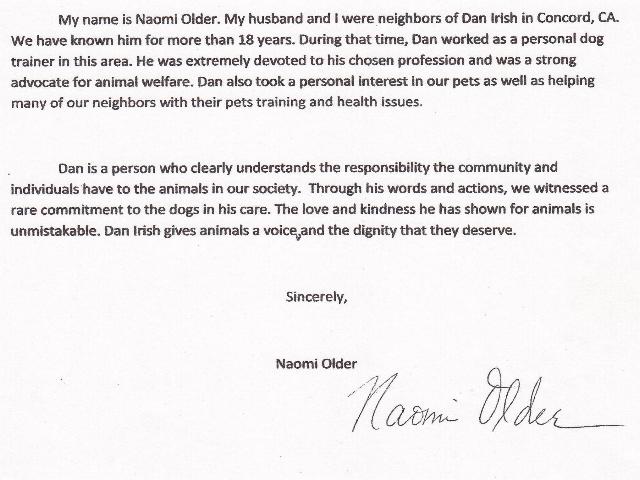 My name is Naomi Older. My husband and I were neighbors of Dan Irish in Concord, CA.
We have known him for more than 18 years. During that time, Dan worked as a personal dog
trainer in this area. He was extremely devoted to his chosen profession and was a strong
advocate for animal welfare. Dan also took a personal interest in our pets as well as helping
many of our neighbors with their pets training and health issues.
Dan is a person who clearly understands the responsibility the community and
individuals have to the animals in our society. Through his words and actions, we witnessed a
rare commitment to the dogs in his care. The love and kindness he has shown for animals is
unmistakable. Dan Irish gives animals a voice,and the dignity that they deserve.
Sincerely,
Naomi Older
Naomi Older